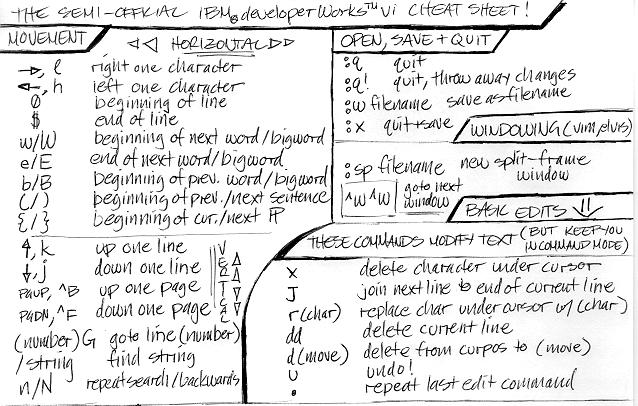 THE SEMI-OFFICIAL IBM® developerWorks™ vi CHEAT SHEET!
MOVEMENT
◁◁ HORIZONTAL ▷▷
→, l right one character
←, h left one character
0 beginning of line
$ end of line
w/W beginning of next word/bigword
e/E end of next word/bigword
b/B beginning of prev. word/bigword
(/) beginning of prev./next sentence
{/} beginning of cur./next ¶
VERTICAL
↑, k up one line
↓, j down one line
PGUP, ^B up one page
PGDN, ^F down one page
(number)G goto line (number)
/string find string
n/N repeat search/backwards
OPEN, SAVE + QUIT
:q quit
:q! quit, throw away changes
:w filename save as filename
:x quit+save
WINDOWING (vim, elvis)
:sp filename new split-frame
window
^w ^w goto next
window
BASIC EDITS ⇓
THESE COMMANDS MODIFY TEXT (BUT KEEP YOU
IN COMMAND MODE)
x delete character under cursor
J join next line to end of current line
r(char) replace char under cursor w/(char)
dd delete current line
d(move) delete from curpos to (move)
u undo!
. repeat last edit command